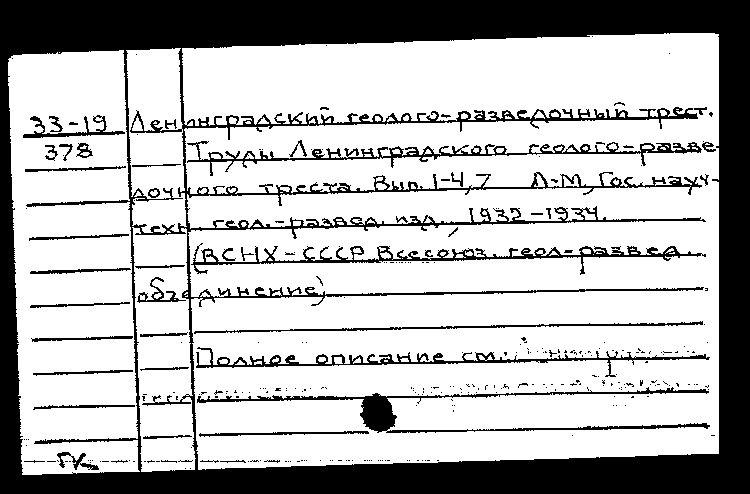 33-19 Ленинградский геолого-разведочный трест.
378 Труды Ленинградского геолого-разве-
дочного треста. Вып. 1-4, 7 Л-М, Гос. науч-
техн геол.-развед. изд., 1932-1934.
(ВСНХ-СССР Всесоюз. геол-развед.
объединение)
Полное описание см.
ГК